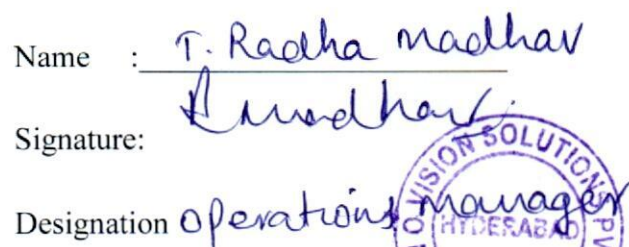 Name : T. Radha Madhav
Signature: R Madhav.
Designation Operations Manager
VISION SOLUTIONS PV
HYDERABAD